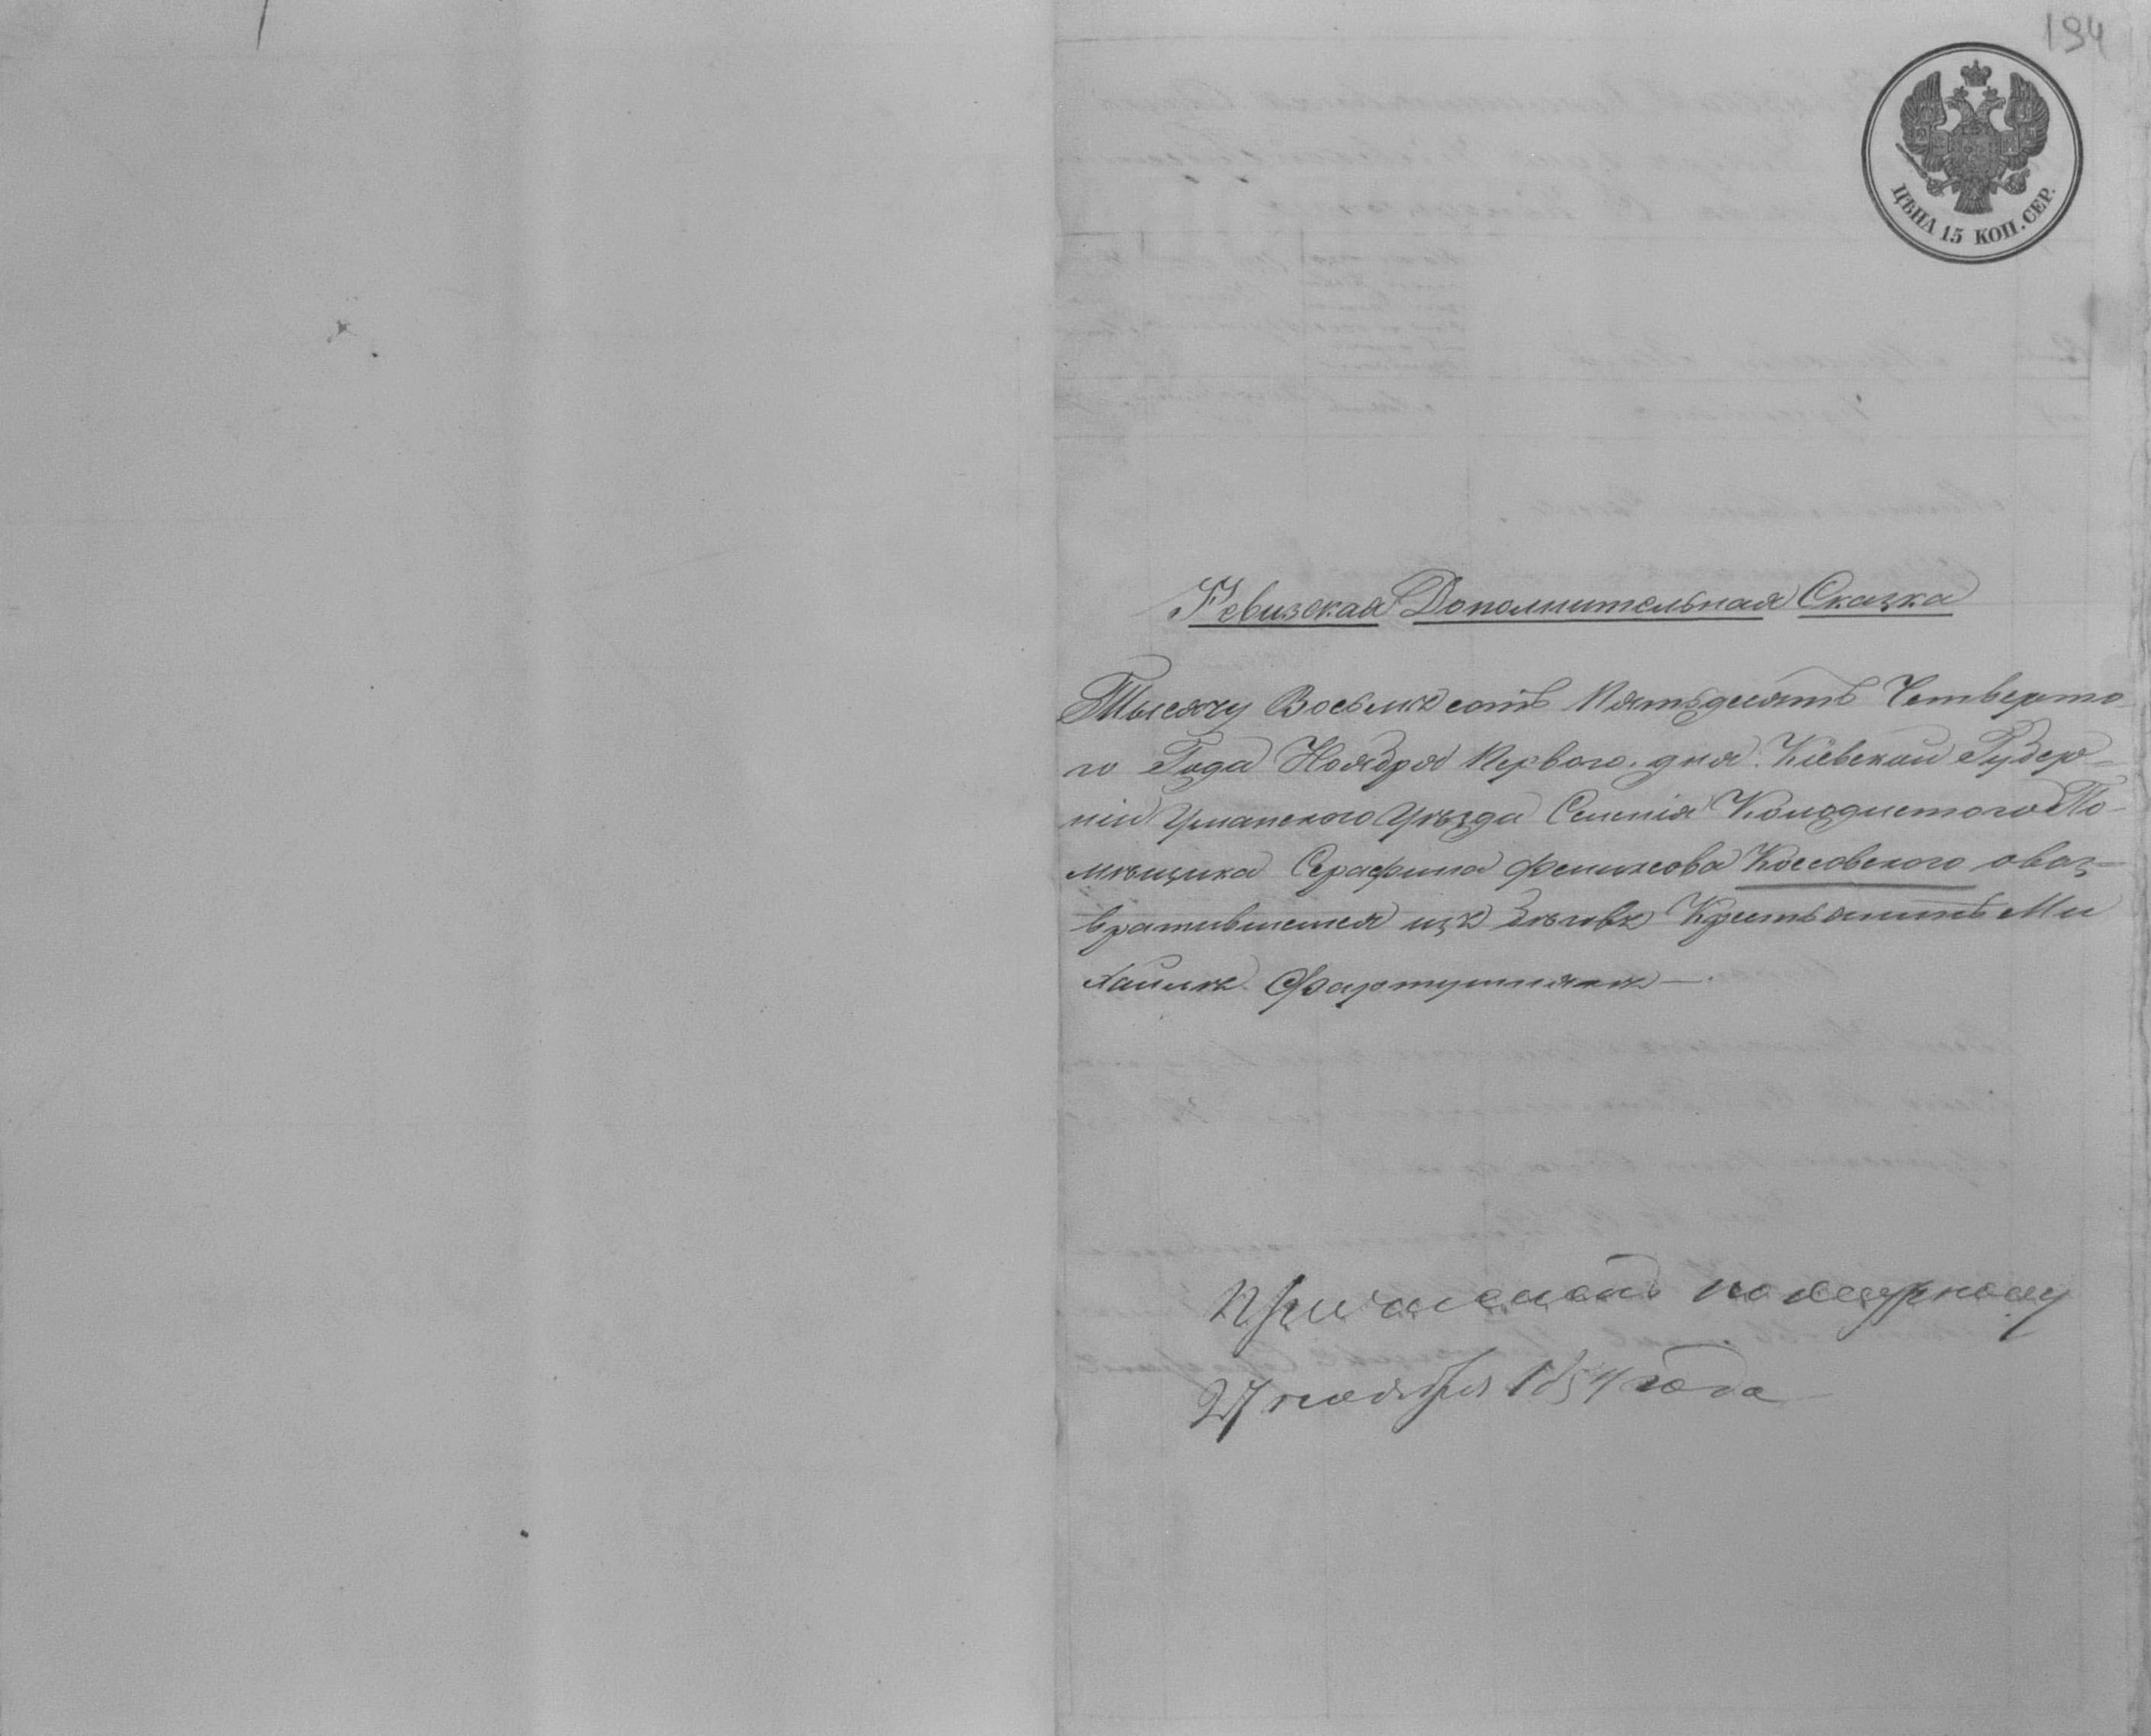 194
ЦѢНА 15 КОП. СЕР.
Ревизская Дополнительная Сказка
Тысячу Восемь сотъ Пятьдесятъ Четверто
го Года Ноября Первого дня Кіевской Губер-
ніи Уманского Уѣзда Селенія Колодистого По-
мѣщика Серафина Феликсова Коссовского о воз-
вратившемся изъ бѣговъ Крестьянинѣ Ми
хаилѣ
27 ноября 1854 года